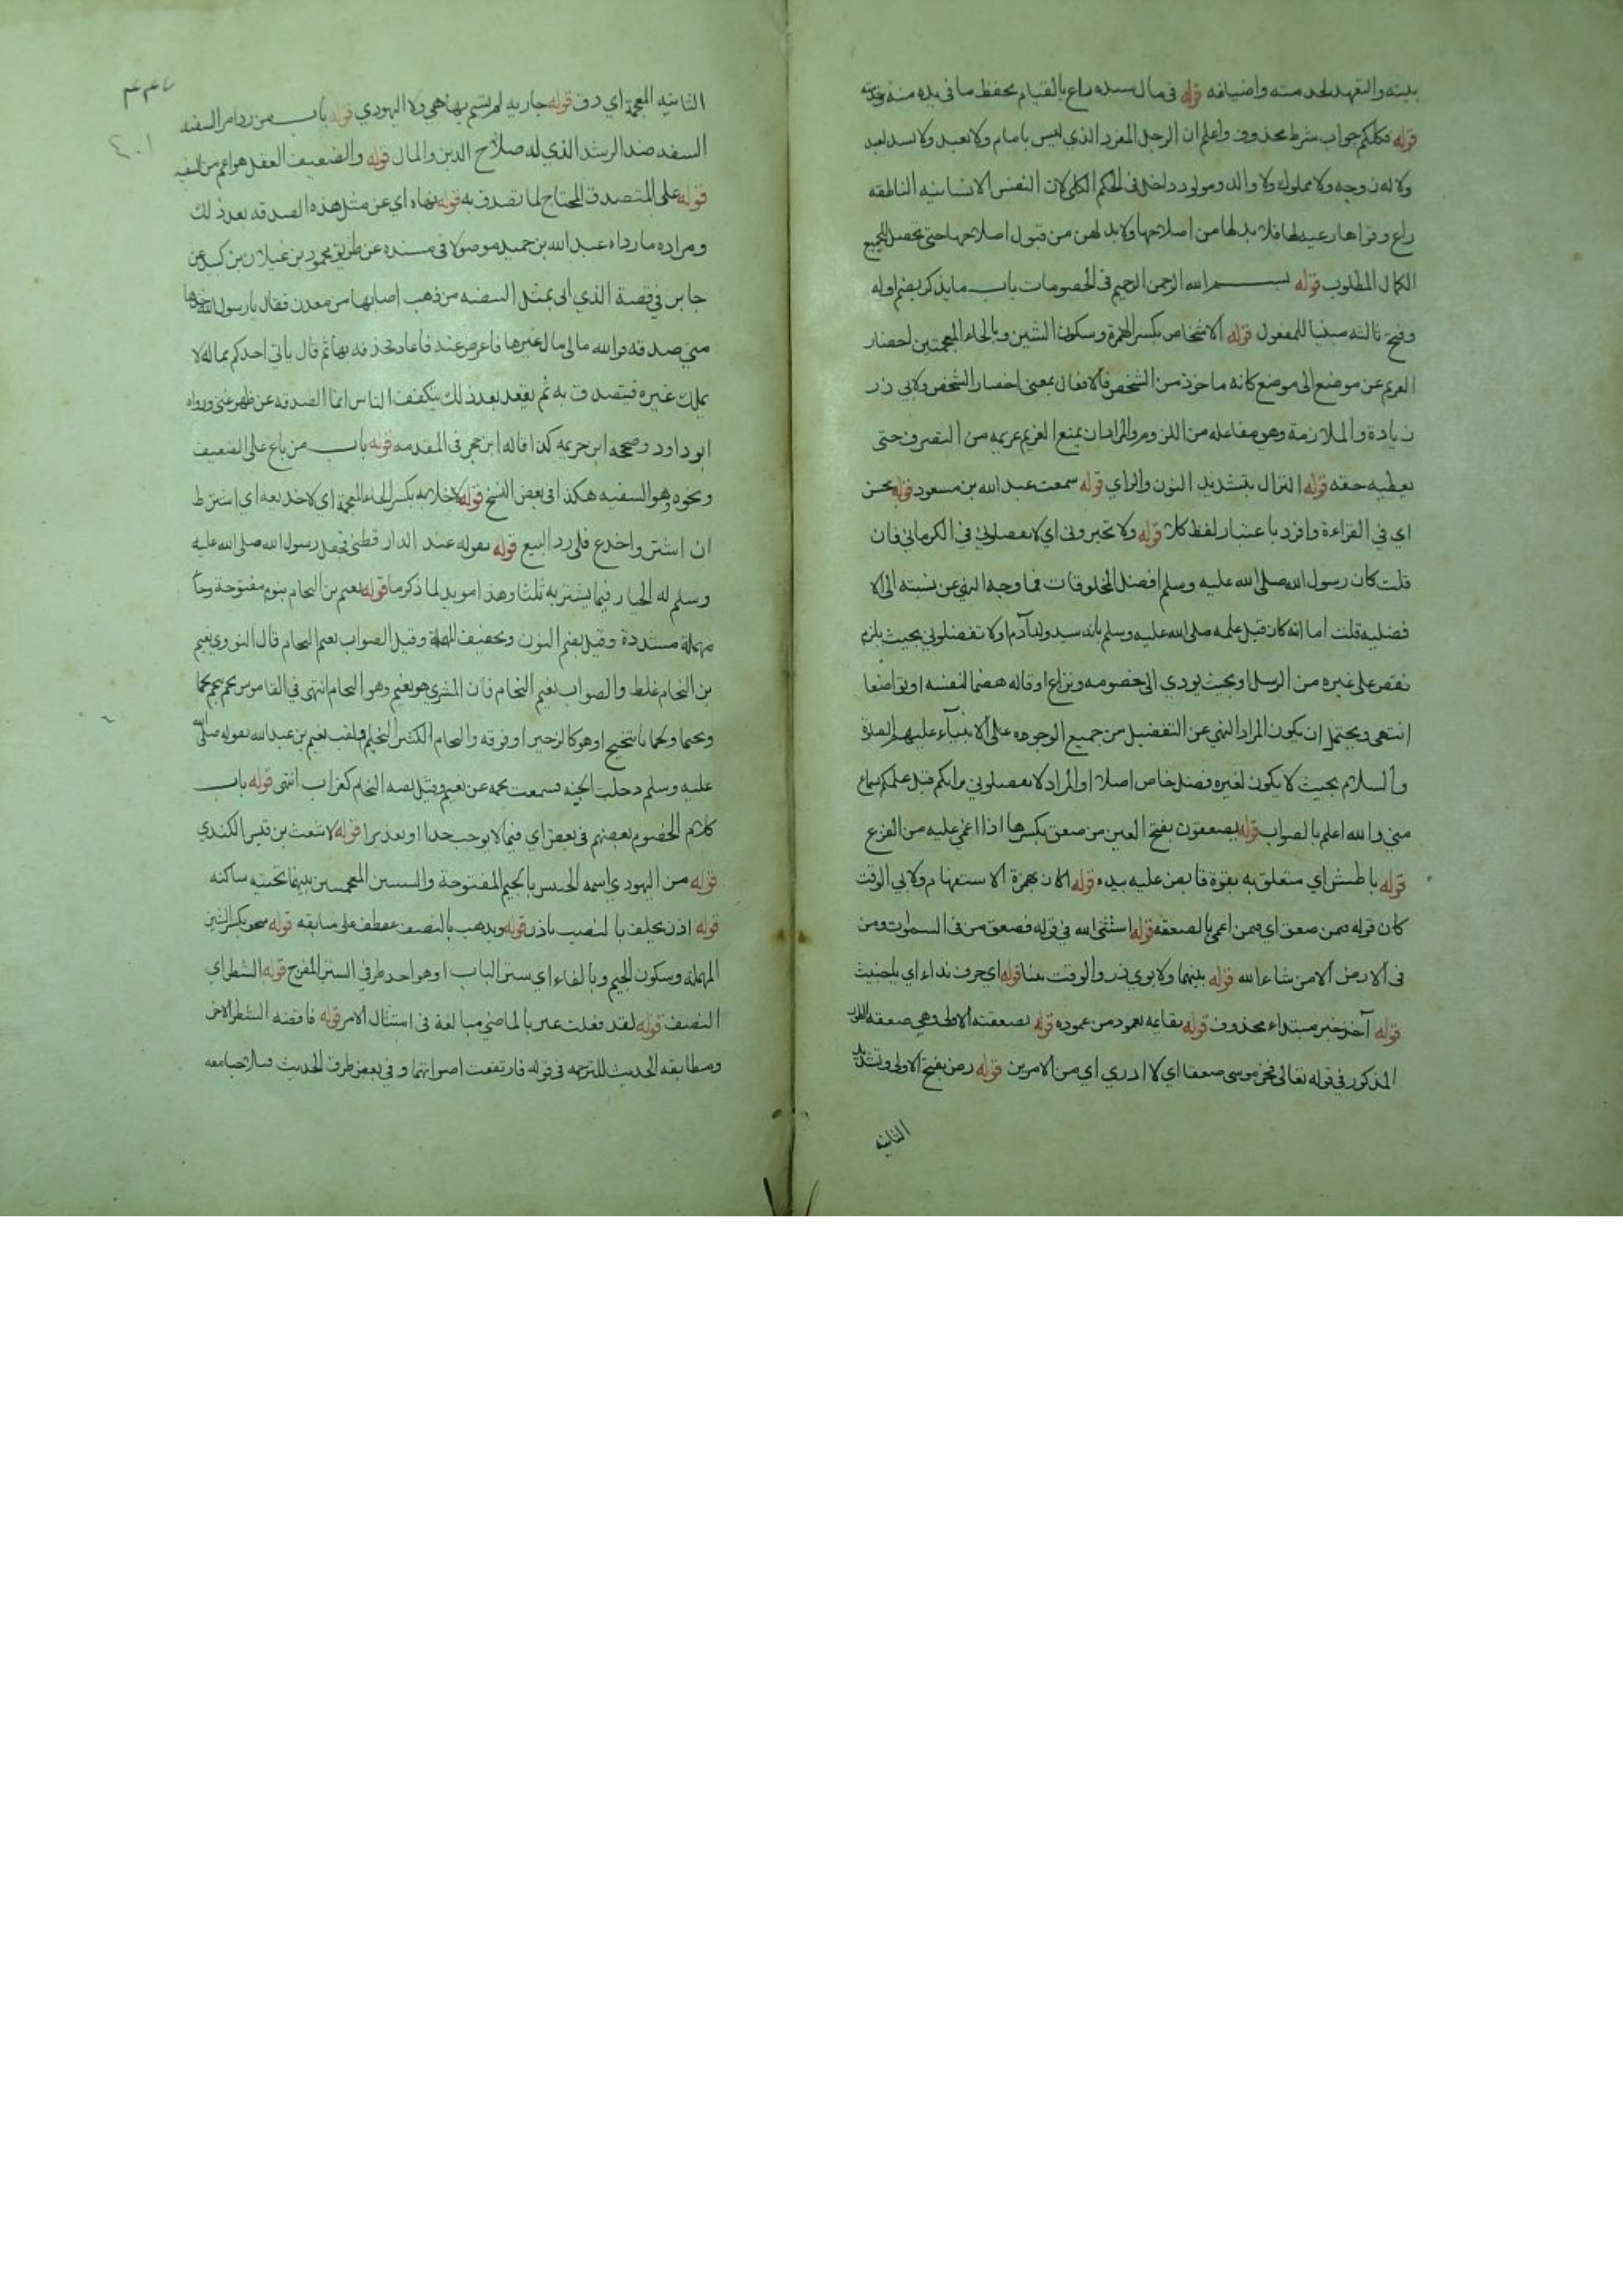 بيته والتعهد لخدمته واضيافه قوله في مال سيده راع بالقيام بحفظ ما في يده منه وخدمته
قوله فكلكم جواب شرط محذوف واعلم ان الرجل المفرد الذي ليس بامام ولا بعبد ولا سيد لعبد
ولا له زوجه ولا مملوك ولا والد ومولود داخل في الحكم الكلي لان النفس الانسانيه الناطقه
راع وقواها رعيه لها فلا بد لها من اصلاحها ولا بد لهن من قبول اصلاحها حتى تحصل للجميع
الكمال المطلوب قوله بسم الله الرحمن الرحيم في الخصومات باب ما يذكر بضم اوله
وفتح ثالثه مبنيا للمفعول قوله الاشخاص بكسر الهمزة وسكون الشين وبالخاء المعجمتين احضار
الغريم عن موضع الى موضع كانه ماخوذ من الشخص فالافعال بمعنى احضار الشخص ولابي ذر
زيادة والملازمة وهي مفاعله من اللزوم والمراد ان يمنع الغريم غريمه من التصرف حتى
يعطيه حقه قوله النزال بتشديد النون والزاي قوله سمعت عبد الله بن مسعود قوله محسن
اي في القراءة وافرد باعتبار لفظ كلا قوله ولا تخيروني اي لا تفضلوني في الكرماني فان
قلت كان رسول الله صلى الله عليه وسلم افضل المخلوقات فما وجه النهي عن نسبته الى الا
فضليه قلت اما انه كان قبل علمه صلى الله عليه وسلم بانه سيد ولد آدم او لا تفضلوني بحيث يلزم
نقص على غيره من الرسل او بحيث يودي الى خصومه ونزاع او قاله هضما لنفسه او تواضعا
انتهى ويحتمل ان يكون المراد النهي عن التفضيل من جميع الوجوه على الانبياء عليهم الصلاة
والسلام بحيث لا يكون لغيره فضل خاص اصلا او المراد لا تفضلوني برايكم قبل علمكم بسماع
مني والله اعلم بالصواب قوله يصعقون بفتح العين من صعق بكسرها اذا اغمي عليه من الفزع
قوله باطش اي متعلق به بقوة قابض عليه بيده قوله اكان بهمزة الاستفهام ولابي الوقت
كان قوله فيمن صعق اي فيمن اغمي بالصعقة قوله استثنى الله في قوله فصعق من في السموات ومن
في الارض الا من شاء الله قوله بينهما ولابوي ذر والوقت بينا قوله اي حرف نداء اي يا خبيث
قوله آخذ خبر مبتداء محذوف قوله بقاعه بعمود من عموده قوله بصعقته الاولى وهي صعقه الطور
المذكور في قوله تعالى فخر موسى صعقا اي لا ادري اي من الامرين قوله رض بفتح الاولى وتشديد
الثانيه
٤٠١
الثانيه المعجمة اي دق قوله جاريه لم تسم بها هي ولا اليهودي قوله باب من رد امر السفيه
السفه ضد الرشد الذي له صلاح الدين والمال قوله والضعيف العقل هو اعم من السفيه
قوله على المتصدق المحتاج لما تصدق به قوله نهاه اي عن مثل هذه الصدقه بعد ذلك
ومراده ما رواه عبد الله بن حميد موصولا في مسنده عن طريق محمود بن غيلان بن كيسان عن
جابر في قصة الذي اتى بمثل البيضه من ذهب اصابها من معدن فقال يا رسول الله خذها
مني صدقه فوالله مالي مال غيرها فاعرض عنه فاعاد فحذفه بها ثم قال ياتي احدكم بماله لا
يملك غيره فيتصدق به ثم يقعد بعد ذلك يتكفف الناس انما الصدقه عن ظهر غنى ورواه
ابو داود وصححه ابن خزيمه كذا قاله ابن حجر في المقدمه قوله باب من باع على الضعيف
ونحوه وهو السفيه هكذا في بعض النسخ قوله لا خلابه بكسر الخاء المعجمة اي لا خديعه اي اشترط
ان اشتر واخدع فلي رد البيع قوله بقوله عند الدار قطني فجعل رسول الله صلى الله عليه
وسلم له الخيار فيما يشتريه ثلثا وهذا مويد لما ذكرنا قوله نعيم بن النحام بنون مفتوحة وحا
مهملة مشددة وقيل بضم النون وتخفيف المهملة وقيل الصواب نعيم النحام قال النووي نعيم
بن النحام غلط والصواب نعيم النحام فان المشري هو نعيم وهو النحام انتهى في القاموس نحم ينحم نحما
ونحيما ونحمانا تنحنح او هو كالزحير او فوقه والنحام الكثير النحيم ولقب نعيم بن عبد الله لقوله صلى الله
عليه وسلم دخلت الجنه فسمعت نحمه من نعيم وقيل لقبه النحام كغراب انتهى قوله باب
كلام الخصوم بعضهم في بعض اي فيما لا يوجب حدا او تعذيرا قوله لاشعث بن قيس الكندي
قوله من اليهود اي اسمه الجفشيش بالجيم المفتوحة والشينين المعجمتين بينهما تحتيه ساكنه
قوله اذن يحلف بالنصب باذن قوله ويذهب بالنصب عطف على سابقه قوله سجف بكسر السين
المهملة وسكون الجيم وبالفاء اي ستر الباب او هو احد طرفي الستر المفرج قوله الشطر اي
النصف قوله لقد فعلت عبر بالماضي مبالغة في امتثال الامر قوله فاقضه الشطر الاخر
ومطابقه الحديث للترجمه في قوله فارتفعت اصواتهما وفي بعض طرق الحديث فتلاحيا معه